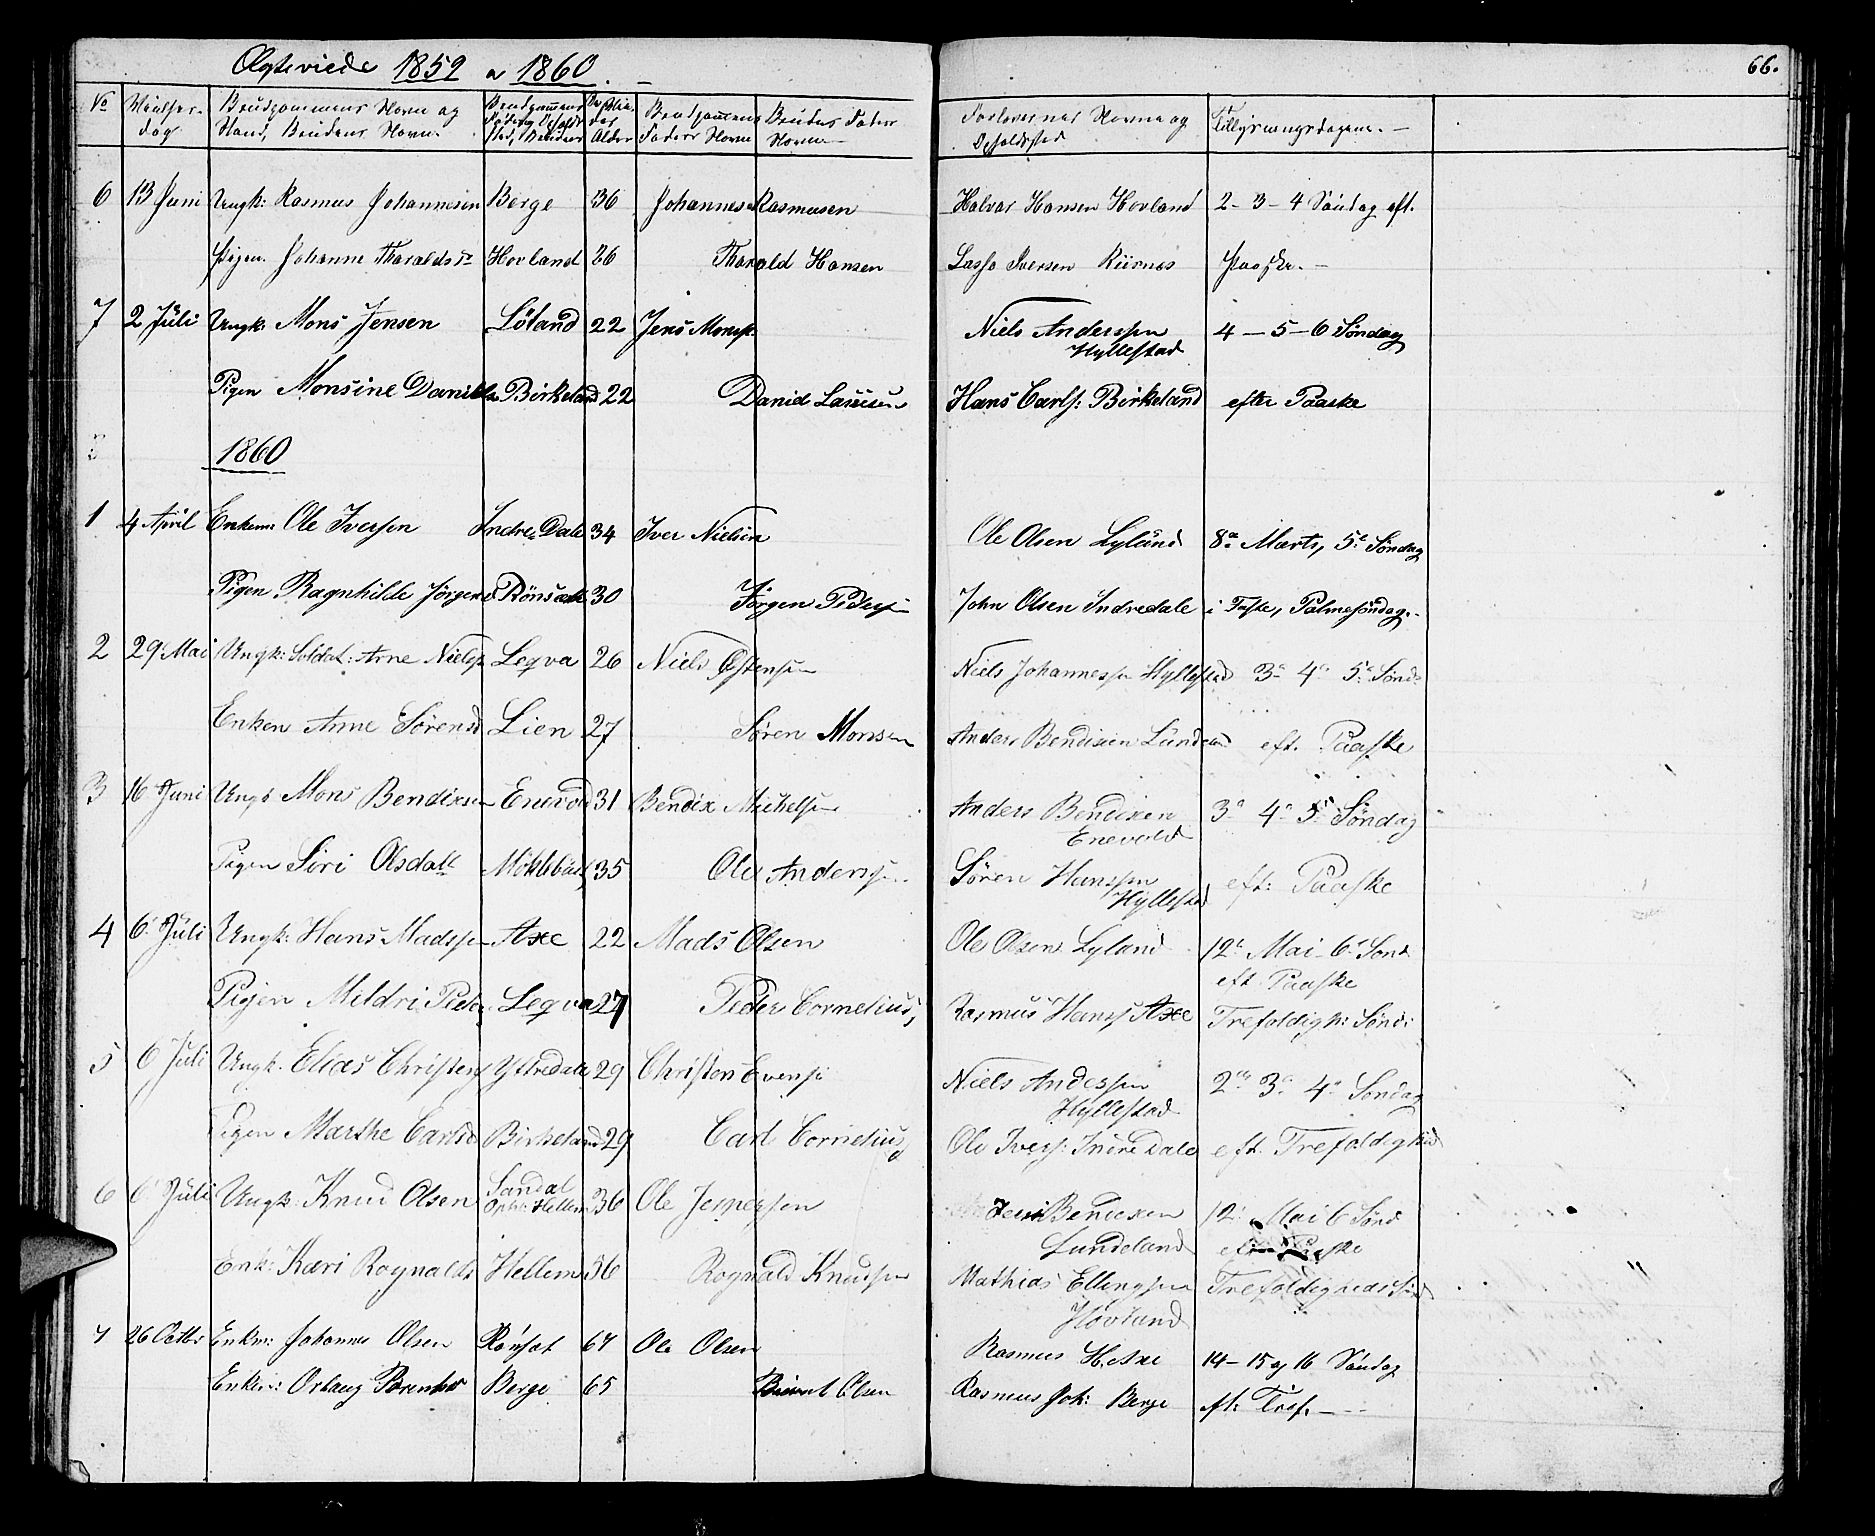 Ægteviede 1859 og 1860.
66.
No Vielses- Brudgommens Navn og Brudgommens De Vie- Brudgommens Brudens Faders Forlovernes Navne og Tillysningsdagene.
dag Stand, Brudens Navn. Alder Faders Navn Navn Opholdssted
6 13 Juni Ungk: Rasmus Johannesen Berge 36 Johannes Rasmusen Halvar Hansen Hovland 2 - 3 - 4 Søndag eft.
Pigen Johanne Tharaldsd. Hovland 26 Tharald Hansen Lasse Iversen Risnes Paaske.
7 2 Juli Ungk: Mons Jensen Løland 22 Jens Monss. Niels Anderssen 4 - 5 - 6 Søndag
Hyllestad
Pigen Monsine Danielsd. Birkeland 22 Daniel Larsen Hans Carls: Birkeland efter Paaske
1860
1 4 April Enkem: Ole Iverssen Indre Dale 34 Iver Nielsen Ole Olsen Lyland 8de Marts, 5te Søndag
Pigen Ragnhilde Jørgensd Rønsæt 30 Jørgen Peders. John Olsen Indredale i Faste, Palmesøndag.
2 29 Mai Ungk: Soldat: Arne Nielss. Leqva 26 Niels Østensen Niels Johannessen Hyllestad 3e 4e 5e Sønd.
Enken Anne Sørensd Lien 27 Søren Monsen Anders Bendixen Lundeland eft. Paaske
3 16 Juni Ungk Mons Bendixsen Enevold 31 Bendix Michelsen Anders Bendixen 3e 4e 5e Søndag
Enevold
Pigen Siri Olsdatt Møklebust 35 Ole Anderssen Søren Hanssen eft: Paaske
Hyllestad
4 6 Juli Ungk: Hans Madssen Axe 22 Mads Olsen Ole Olsen Lyland 12e Mai 6e Sønd
eft. Paaske
Pigen Mildri Peders. Leqva 27 Peder Cornelius. Rasmus Hanss Axe Trefoldigh: Sønd:
5 6 Juli Ungk. Elias Christens Ytredale 29 Christen Evens. Niels Anderssen 2en 3e 4e Søndag
Hyllestad
Pigen Marthe Carlsd Birkeland 29 Carl Cornelius. Ole Ivers: Indre Dale eft. Trefoldighed
6 6 Juli Ungk: Knud Olsen Sandal 36 Ole Jespersen Bendixen 12 Mai 6 Sønd
Oph: Hellem Lundeland Paaske
Enk: Kari Rognalds Hellem 36 Rognald Knudsen Mathias Ellingsen Trefoldigheds Sønd
Hovland
7 26 Octbr Enkm: Johannes Olsen Rønset 67 Ole Olsen Rasmus H. Axe 14 - 15 og 16 Søndag
Enken: Berge 65 Olsen Rasmus Joh: Berge eft: Tref.